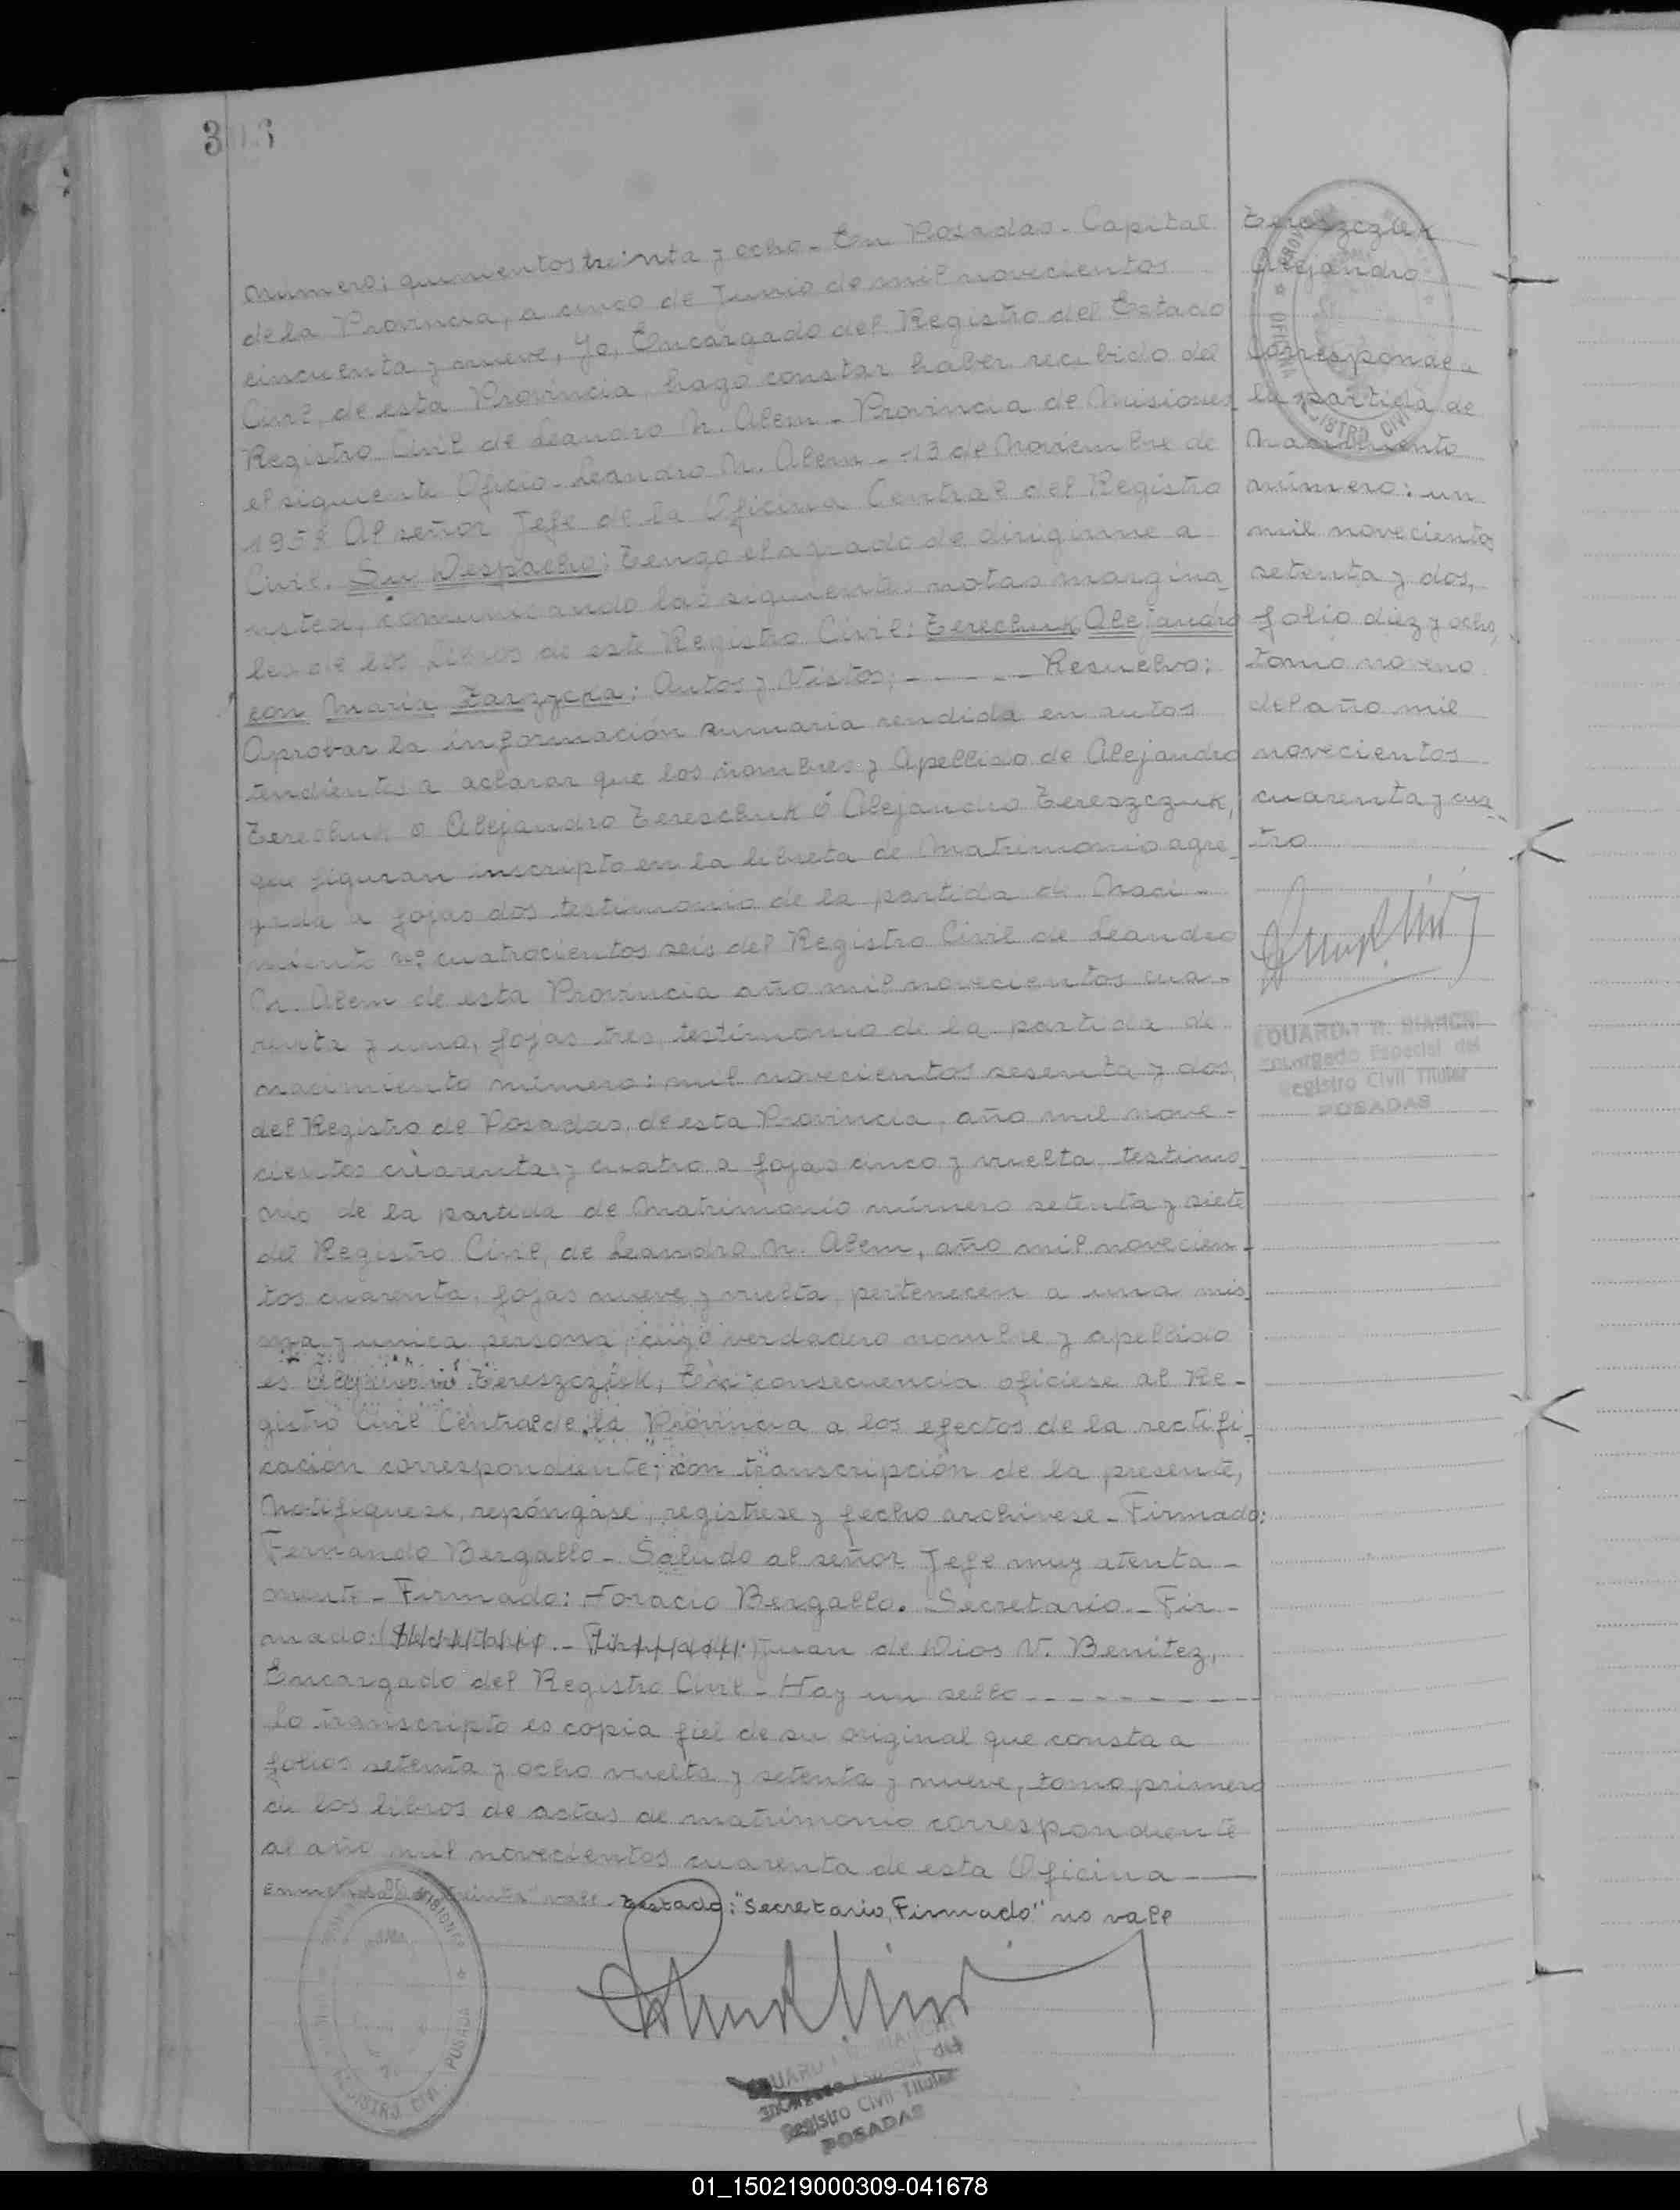 306
Numero: quinientos treinta y ocho - En Posadas - Capital
de la Provincia, a cinco de Junio de mil novecientos
cincuenta y nueve, Yo, Encargado del Registro del Estado
Civil, de esta Provincia, hago constar haber recibido del
Registro Civil de Leandro N. Alem - Provincia de Misiones
el siguiente Oficio - Leandro N. Alem - 13 de Noviembre de
1958 Al señor Jefe de la Oficina Central del Registro
Civil. Su Despacho: Tengo el agrado de dirigirme a
usted, comunicando las siguientes notas margina_
les de los libros de este Registro Civil: Terechuk Alejandro
con Maria Zarzycka: Autos y Vistos: - - - - - Resuelvo:
Aprobar la información sumaria rendida en autos
tendientes a aclarar que los nombres y Apellido de Alejandro
Terechuk o Alejandro Tereschuk ó Alejandro Tereszczuk,
que figuran inscripto en la libreta de Matrimonio agre_
gada a fojas dos testimonio de la partida de Naci -
miento nº cuatrocientos seis del Registro Civil de Leandro
N. Alem de esta Provincia año mil novecientos cua -
renta y uno, fojas tres, testimonio de la partida de
nacimiento número: mil novecientos sesenta y dos,
del Registro de Posadas, de esta Provincia, año mil nove -
cientos cuarenta y cuatro a fojas cinco y vuelta, testimo_
nio de la partida de Matrimonio número setenta y siete
del Registro Civil, de Leandro N. Alem, año mil novecien -
tos cuarenta, fojas nueve y vuelta, pertenecen a una mis_
ma y unica persona, cuyo verdadero nombre y apellido
es Alejandro Tereszczuk, En consecuencia oficiese al Re -
gistro Civil Central de la Provincia a los efectos de la rectifi_
cación correspondiente, con transcripción de la presente,
Notifiquese, repóngase, registrese y fecho archivese - Firmado:
Fernando Bergallo - Saludo al señor Jefe muy atenta -
mente - Firmado: Horacio Bergallo. Secretario - Fir -
mado: (Secretario - Firmado: Juan de Dios V. Benitez,
Encargado del Registro Civil - Hay un sello - - - - - - - - -
Lo transcripto es copia fiel de su original que consta a
folios setenta y ocho vuelta y setenta y nueve, tomo primero
de los libros de actas de matrimonio correspondiente
al año mil novecientos cuarenta de esta Oficina ——
Enmendado: "treinta" vale - Testado: "Secretario, Firmado" no vale
Tereszczuk
Alejandro
Corresponde a
la partida de
Nacimiento
número: un
mil novecientos
setenta y dos,
folio diez y ocho,
tomo noveno
del año mil
novecientos
cuarenta y cua_
tro
EDUARDO R. BIANCHI
Encargado Especial del
Registro Civil Titular
POSADAS
EDUARDO R. BIANCHI
Encargado Especial del
Registro Civil Titular
POSADAS
OFICINA REGISTRO CIVIL
DE MISIONES
REGISTRO CIVIL POSADAS
01_150219000309-041678